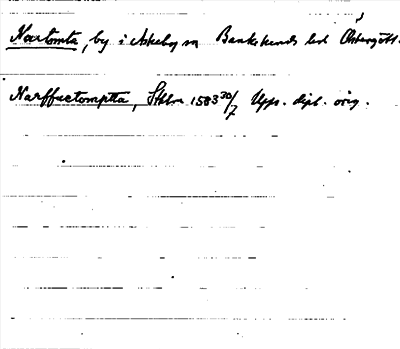 Nartomta, by i Askeby sn Bankekinds hd Östergötl.
Narffuetomptta, Sthlm 1583 30/7 Upps. dipl. orig.